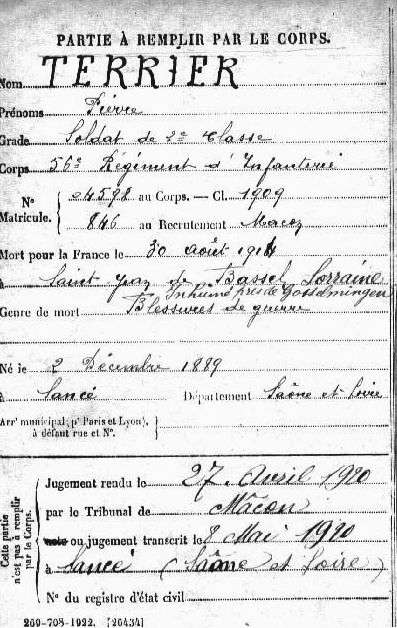 PARTIE À REMPLIR PAR LE CORPS.
Nom TERRIER
Prénoms Pierre
Grade Soldat de 2e Classe
Corps 56e Régiment d'Infanterie
N° Matricule. 04598 au Corps. — Cl. 1909
846 au Recrutement Macon
Mort pour la France le 30 août 1914
à Saint Jean de Bassel Lorraine
Inhumé près de Gosselmingen
Genre de mort Blessures de guerre
Né le 2 Décembre 1889
à Sancé Département Saône et Loire
Arr' municipal (p' Paris et Lyon),
à défaut rue et N°.
Cette partie n'est pas à remplir par le Corps.
Jugement rendu le 27 Avril 1920
par le Tribunal de Mâcon
ou jugement transcrit le 8 Mai 1920
à Sancé (Saône et Loire)
N° du registre d'état civil
269-708-1922. [26434]